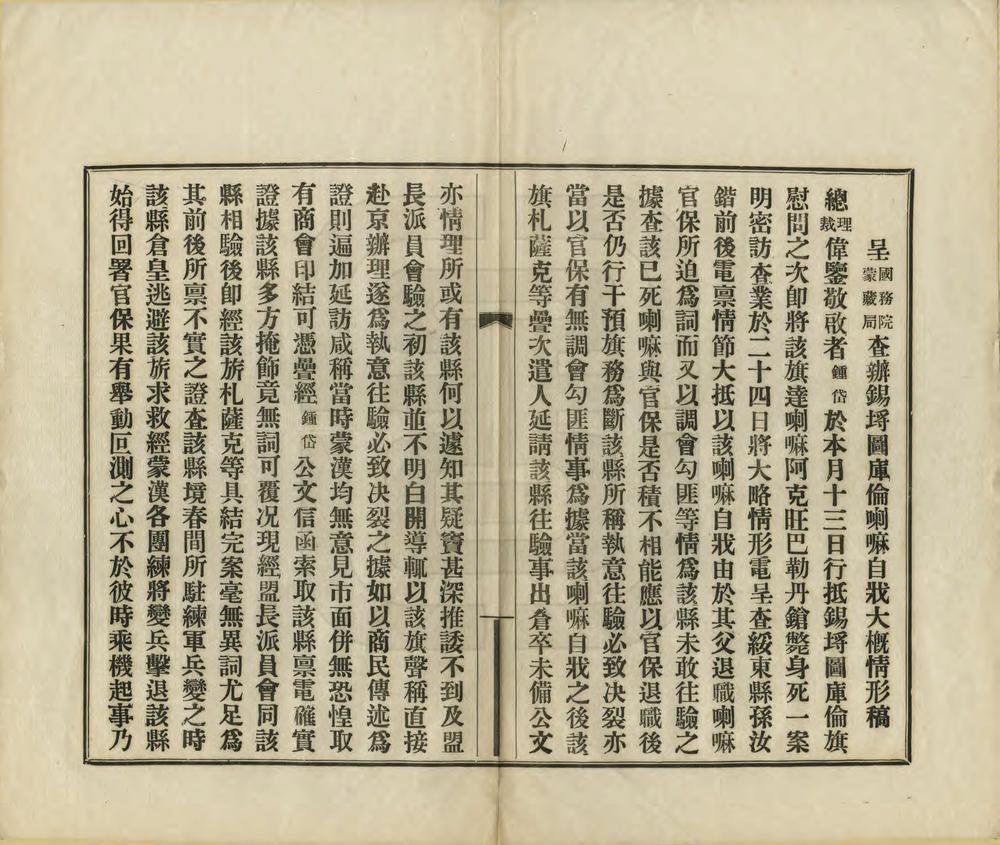 呈國務院蒙藏局查辦錫埒圖庫倫喇嘛自戕大概情形稿
總理裁偉鑒敬啟者鍾岱於本月十三日行抵錫埒圖庫倫旗
慰問之次即將該旗達喇嘛阿克旺巴勒丹鎗斃身死一案
明密訪查業於二十四日將大略情形電呈查綏東縣孫汝
鍇前後電禀情節大抵以該喇嘛自戕由於其父退職喇嘛
官保所迫爲詞而又以調會勾匪等情爲該縣未敢往驗之
據查該已死喇嘛與官保是否積不相能應以官保退職後
是否仍行干預旗務爲斷該縣所稱執意往驗必致決裂亦
當以官保有無調會勾匪情事爲據當該喇嘛自戕之後該
旗札薩克等疊次遣人延請該縣往驗事出倉卒未備公文
亦情理所或有該縣何以遽知其疑竇甚深推諉不到及盟
長派員會驗之初該縣並不明白開導輒以該旗聲稱直接
赴京辦理遂爲執意往驗必致決裂之據如以商民傳述爲
證則遍加延訪咸稱當時蒙漢均無意見市面併無恐惶取
有商會印結可憑疊經鍾岱公文信函索取該縣禀電確實
證據該縣多方掩飾竟無詞可覆況現經盟長派員會同該
縣相驗後即經該旂札薩克等具結完案毫無異詞尤足爲
其前後所禀不實之證查該縣境春間所駐練軍兵變之時
該縣倉皇逃避該旂求救經蒙漢各團練將變兵擊退該縣
始得回署官保果有舉動叵測之心不於彼時乘機起事乃